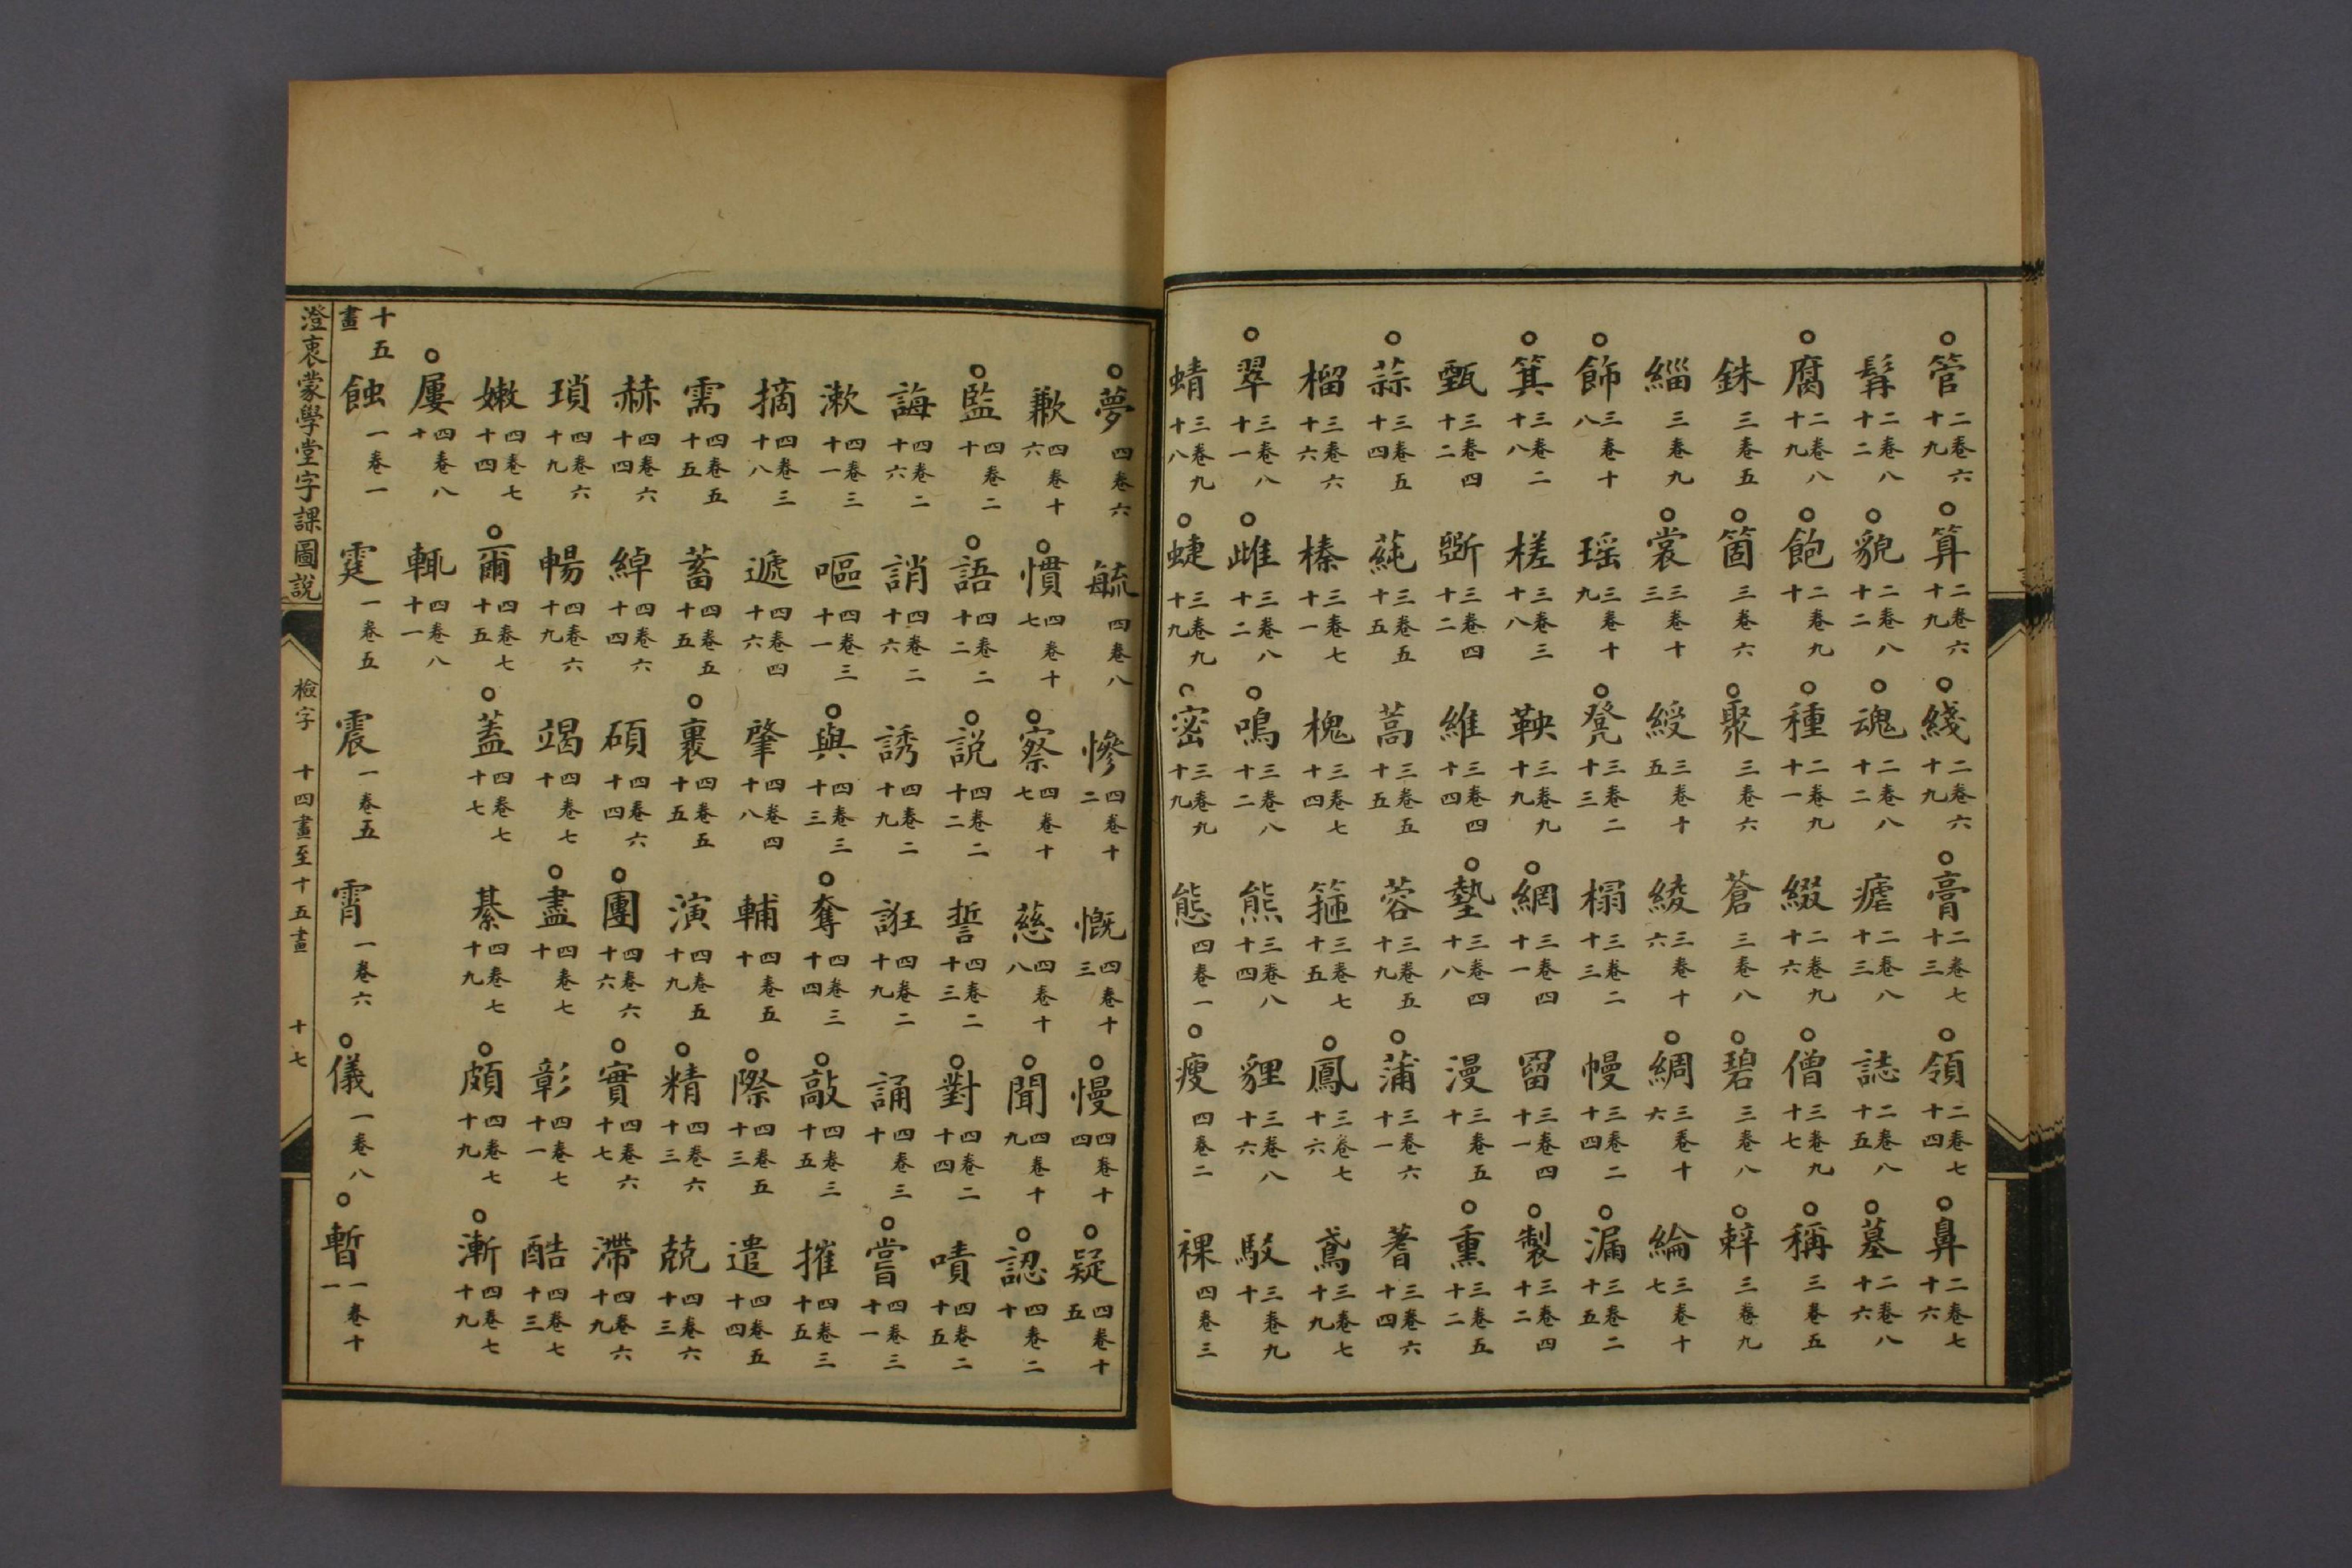 ○管二卷六十九 ○算二卷六十九 ○綫二卷六十九 ○膏二卷七十三 ○領二卷七十四 ○鼻二卷七十六
髯二卷八十二 ○貌二卷八十二 ○魂二卷八十二 瘧二卷八十三 誌二卷八十五 ○墓二卷八十六
○腐二卷八十九 ○飽二卷九十 ○種二卷九十一 綴二卷九十六 ○僧三卷九十七 ○稱三卷五
銖三卷五 ○箇三卷六 ○聚三卷六 蒼三卷八 ○碧三卷八 ○辢三卷九
緇三卷九 ○裳三卷十三 綬三卷十五 綾三卷十六 ○綢三卷十六 綸三卷十七
○飾三卷十八 瑶三卷十九 ○凳三卷二十三 榻三卷二十三 幔三卷二十四 ○漏三卷二十五
○箕三卷二十八 槎三卷三十八 鞅三卷九十九 ○網三卷四十一 罶三卷四十一 ○製三卷四十二
甄三卷四十二 斲三卷四十二 維三卷四十四 ○墊三卷四十八 漫三卷五十 ○熏三卷五十二
○蒜三卷五十四 蒓三卷五十五 蒿三卷五十五 蓉三卷五十九 ○蒲三卷六十一 蓍三卷六十四
榴三卷六十六 榛三卷七十一 槐三卷七十四 箍三卷七十五 ○鳳三卷七十六 鳶三卷七十九
○翠三卷八十一 ○雌三卷八十二 ○鳴三卷八十二 熊三卷八十四 貍三卷八十六 駁三卷九十
蜻三卷九十八 ○蜨三卷九十九 ○密三卷九十九 態四卷一 ○瘦四卷二 裸四卷三
○夢四卷六 毓四卷八 慘四卷十二 慨四卷十三 ○慢四卷十四 ○疑四卷十五
歉四卷十六 ○慣四卷十七 ○察四卷十七 慈四卷十八 ○聞四卷十九 ○認四卷二十
○監四卷二十 ○語四卷二十二 ○說四卷二十二 誓四卷二十三 ○對四卷二十四 嘖四卷二十五
誨四卷二十六 誚四卷二十六 誘四卷二十九 誑四卷二十九 誦四卷三十 ○嘗四卷三十一
漱四卷三十一 嘔四卷三十一 ○與四卷三十三 ○奪四卷三十四 ○敲四卷三十五 摧四卷三十五
摘四卷三十八 遞四卷四十六 肇四卷四十八 輔四卷五十 ○際四卷五十三 遣四卷五十四
需四卷五十五 蓄四卷五十五 ○裹四卷五十五 演四卷五十九 ○精四卷六十三 兢四卷六十三
赫四卷六十四 綽四卷六十四 碩四卷六十四 ○團四卷六十六 ○實四卷六十七 滯四卷六十九
瑣四卷六十九 暢四卷六十九 竭四卷七十 ○盡四卷七十 彰四卷七十一 酷四卷七十三
嫩四卷七十四 ○爾四卷七十五 ○蓋四卷七十七 綦四卷七十九 ○頗四卷七十九 ○漸四卷七十九
○屢四卷八十 輒四卷八十一
十五畫
蝕一卷一 霆一卷五 震一卷五 霄一卷六 ○儀一卷八 ○暫一卷十一
澄衷蒙學堂字課圖說 檢字 十四畫至十五畫 十七